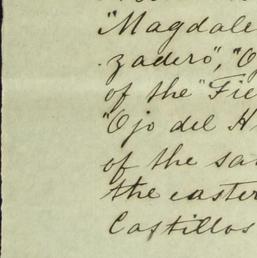 "Magdale
zadero", "O
of the "Fie
"Ojo del H
of the sa
the easter
Castillos